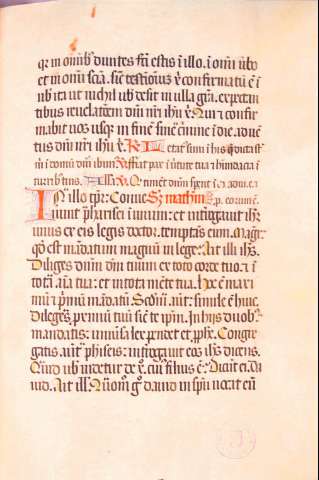 qr in omib; diuites fc̄i estis ĩ illo. ĩ om̄i ũbo
et in om̄i scīa. sic̄ testĩoniũ x̄ confirmatũ ē ĩ
uob̄ ita ut nichil uob̄ desit in ulla gr̄a. expectan
tibus reuelac̄oem dn̄i nr̄i ihū x̄. Qui ⁊ confir
mabit uos usqȝ in finē sine c̄mine ĩ die aduen
tus dn̄i nr̄i ihū x̄. R̄ Letatꝰ sum ĩ his q̄ dicta sr̄
m̄ ĩ domũ dn̄i ibimꝰ. V̄ fiat pax ĩ ũtute tua ⁊ hũndacia ĩ
turribꝰ tuis. Alla. V̄. timebt̄
In illo tp̄r: Conue S; math̄m
nerunt pharisei in unum: et int̄rogauit ih̄ȝ
unus ex eis legis doctor. temptans eum. Magr̄
qd̄ est mādatum magnũ in lege: Ait illi ih̄s.
Diliges dn̄m dm̄ tuum ex toto corde tuo. ⁊ ĩ
tota aīa tua: et in tota mēte tua. Hoc ē maxi
mũ ⁊ p̄mũ mādatũ. Scd̄m aut̄: simile ē huic.
Diliges p̄ximũ tuũ sic̄ te ip̄m. In hijs duob;
mandatis: uniũsa lex pendet et pph̄e. Congre
gatis aut̄ ph̄iseis: int̄rogauit eos ih̄s dicens.
Quid uob̄ uidetur de x̄. cuiꝰ filius ē: Dicūt ei. Da
uid. Ait ill̄. Quom̄o gͦ dauid in sp̄u uocat eũ